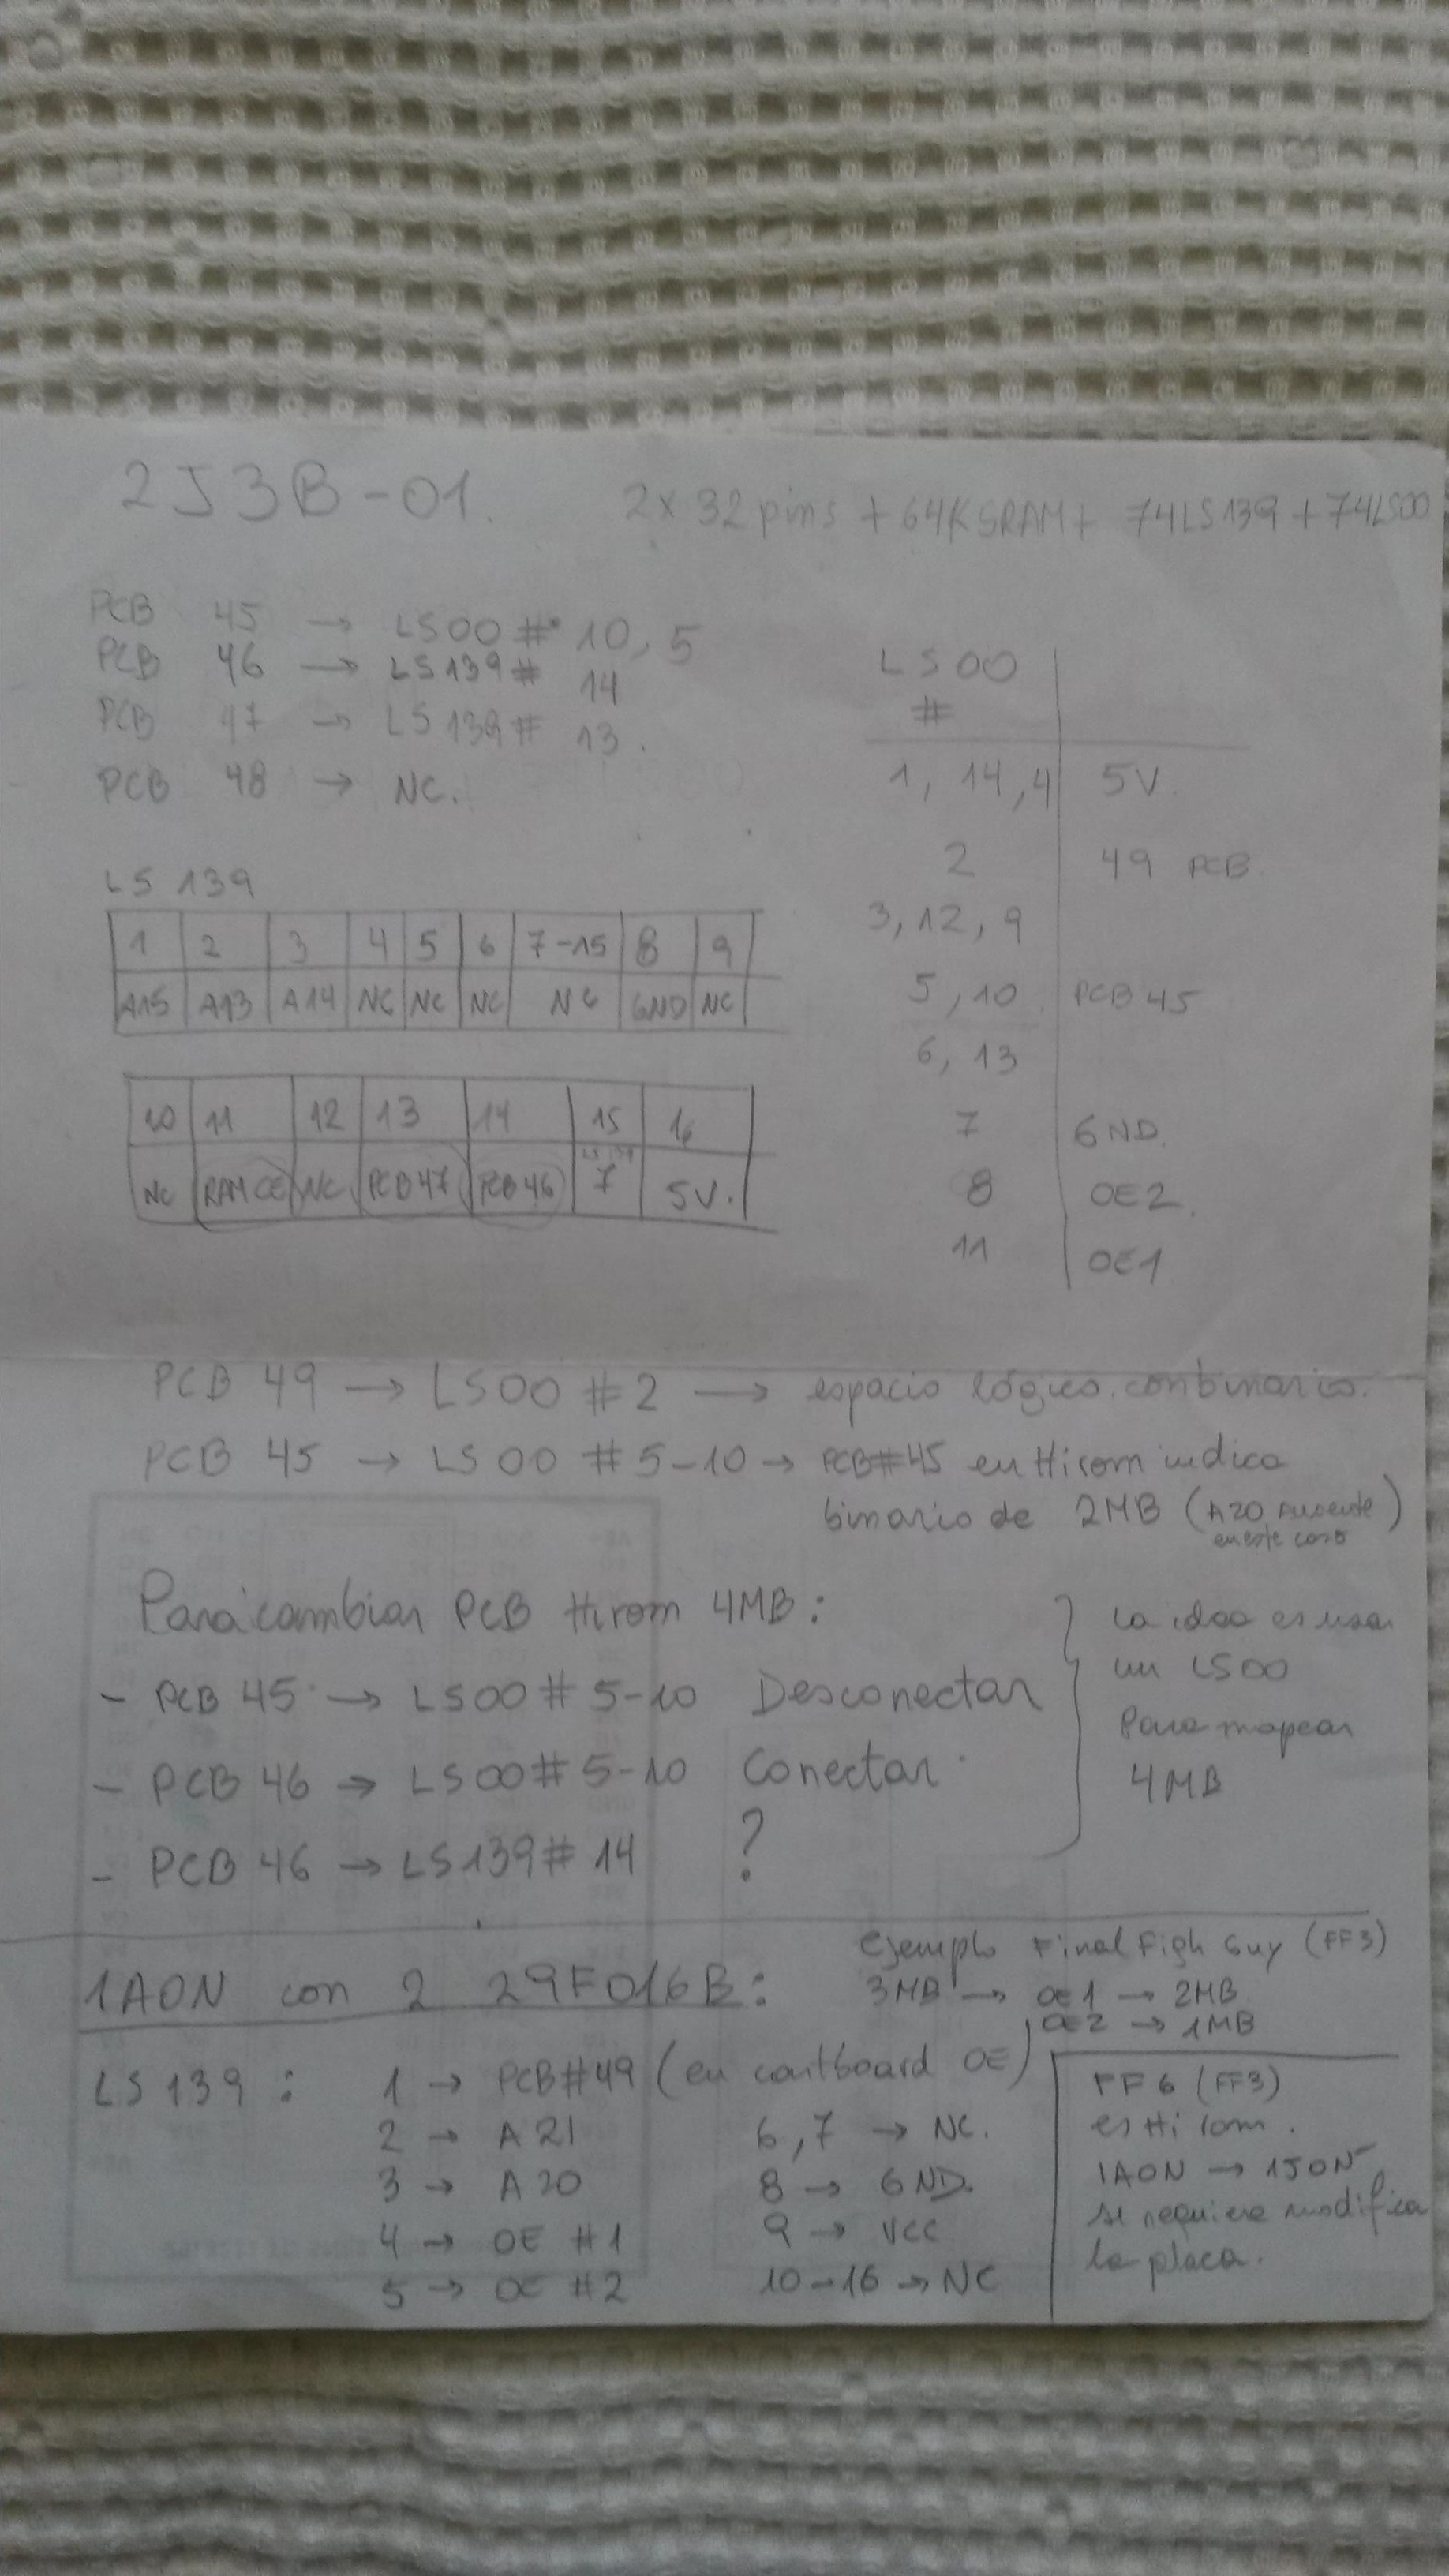 2J3B-01. 2x32pins + 64KSRAM + 74LS139 + 74LS00
PCB 45 → LS00 # 10, 5
PCB 46 → LS139 # 14
PCB 47 → LS139 # 13.
PCB 48 → NC.
LS00
#
1, 14, 4 5V.
2 49 PCB.
3, 12, 9
5, 10 PCB 45
6, 13
7 GND.
8 OE2.
11 OE1
LS 139
1 2 3 4 5 6 7-15 8 9
A15 A13 A14 NC NC NC NC GND NC
10 11 12 13 14 15 16
NC RAM CE NC PCB47 PCB46 LS139 7 5V.
PCB 49 → LS00 #2 → espacio lógico combinario.
PCB 45 → LS00 #5-10 → PCB#45 en Hirom indica
binario de 2MB (A20 Ausente
en este caso)
Para cambiar PCB Hirom 4MB:
- PCB 45 → LS00 # 5-10 Desconectar
- PCB 46 → LS00 # 5-10 Conectar.
- PCB 46 → LS139 # 14 ?
La idea es usar
un LS00
Para mapear
4MB
1AON con 2 29F016B:
ejemplo Final Figh Guy (FF3)
3MB → OE1 → 2MB
OE2 → 1MB
LS139: 1 → PCB#49 (en cartboard OE)
2 → A21
3 → A20
4 → OE #1
5 → OE #2
6,7 → NC.
8 → GND.
9 → VCC
10-16 → NC
FF6 (FF3)
es Hi rom.
1AON → 1JON
se requiere modifica
la placa.